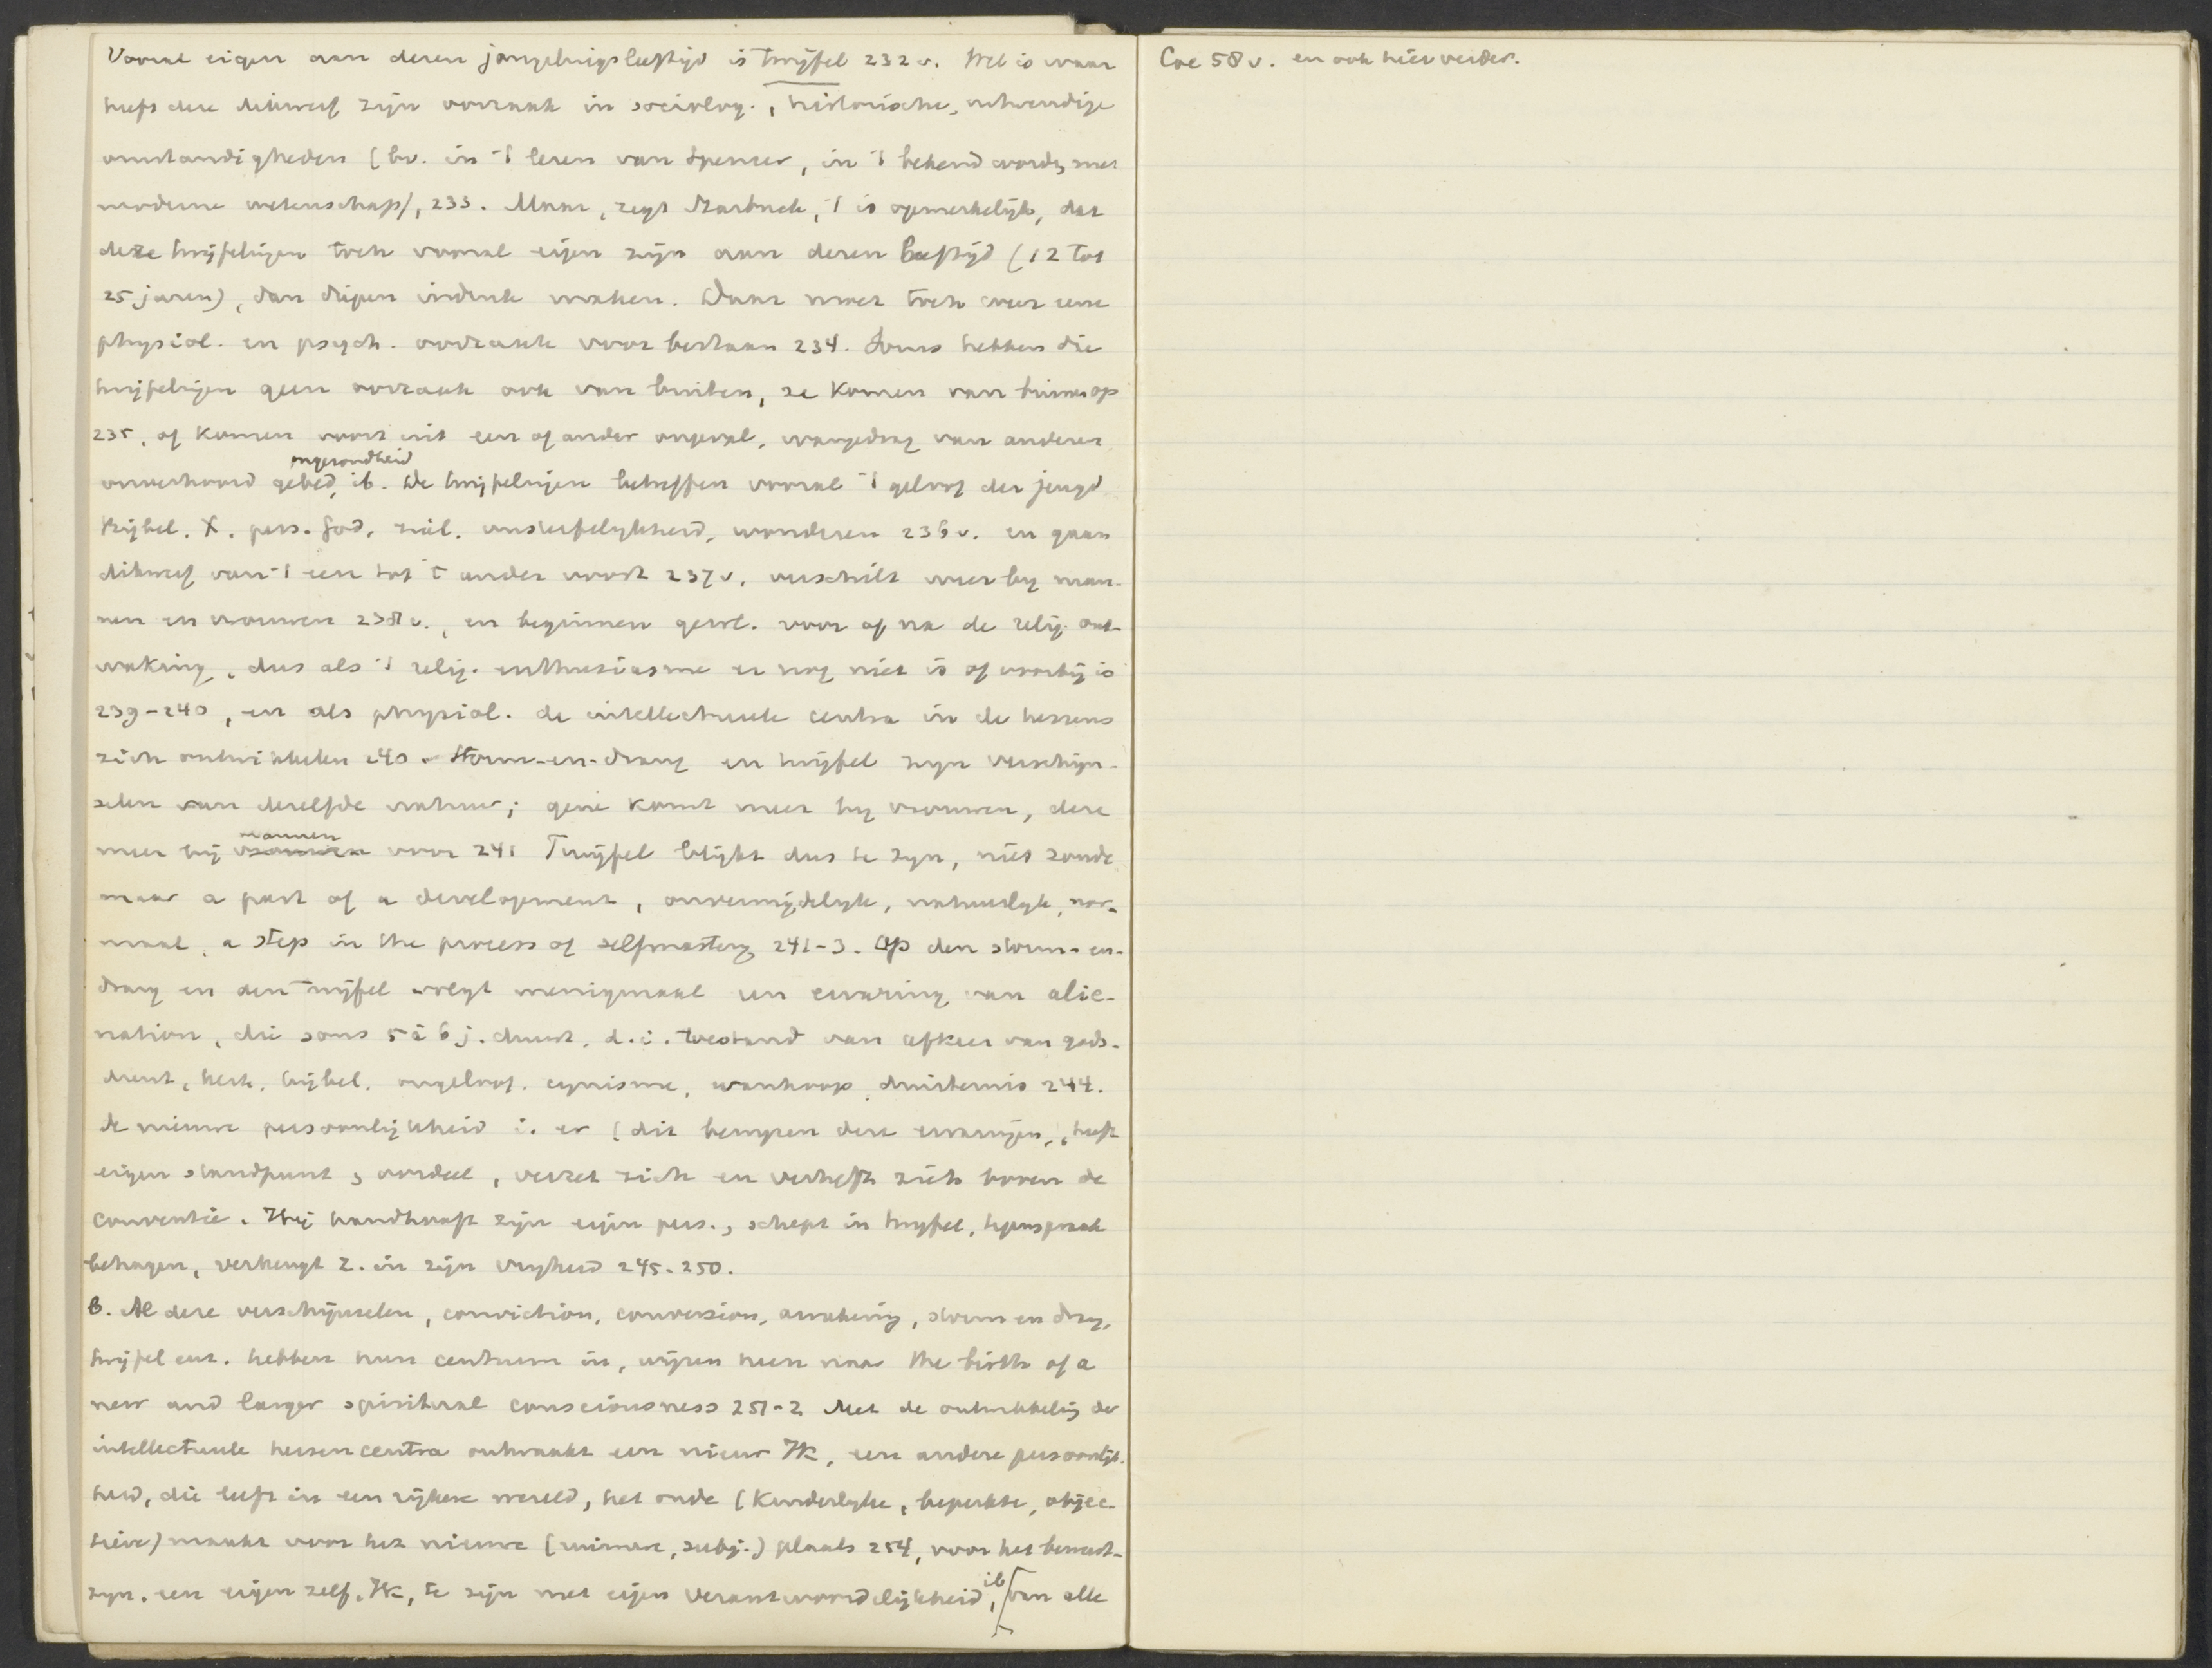 Vooral eigen aan dezen jongelingsleeftijd is twijfel 232 v. Wel is waar
heeft deze dikwerf zijn oorzaak in sociolog., historische, uitwendige
omstandigheden (bv. in 't lezen van Spencer, in 't bekend word. met
moderne wetenschap), 233. Maar, zegt Starbuck, 't is opmerkelijk, dat
deze twijfelingen toch vooral eigen zijn aan dezen leeftijd (12 tot
25 jaren), dan diepen indruk maken. Daar moet toch weer eene
physiol. en psych. oorzaak voor bestaan 234. Soms hebben die
twijfelingen geen oorzaak ook van buiten, ze komen van binnen op
235, of komen voort uit een of ander ongeval, wangedrag van anderen
ongezondheid
onverhoord gebed, ib. De twijfelingen betreffen vooral 't geloof der jeugd
Bijbel. X. pers. God. ziel. onsterfelykheid, wonderen 236 v. en gaan
dikwerf van 't een tot 't ander voort 237 v, verschilt weer by man-
nen en vrouwen 238 v., en beginnen gewl. voor of na de relig. ont-
waking, dus als 't relig. enthusiasme er nog niet is of voorbij is
239-240, en als physiol. de intellectueele centra in de hersens
zich ontwikkelen 240. Storm-en-drang en twijfel zyn verschijn-
selen van dezelfde natuur; gene komt meer by vrouwen, deze
mannen
meer bij vrouwen voor 241 Twijfel blijkt dus te zyn, niet zonde
maar a part of a development, onvermijdelyk, natuurlyk, nor-
maal, a step in the process of selfmastery 241-3. Op den storm-en-
drang en den twijfel volgt menigmaal een ervaring van alie-
nation, die soms 5 à 6 j. duurt, d.i. toestand van afkeer van gods-
dienst, kerk, bijbel. ongeloof. cynisme, wanhoop, duisternis 244.
de nieuwe persoonlijkheid is er (dit bewyzen deze ervaringen, heeft
eigen standpunt, oordeel, verzet zich en verheft zich boven de
conventie. Hij handhaaft zijn eigen pers., schept in twyfel, tegenspraak
behagen, verheugt z. in zijn vryheid 245-250.
b. Al deze verschijnselen, conviction, conversion, awakening, storm en drang,
twijfel enz. hebben hun centrum in, wijzen heen naar the birth of a
new and larger spiritual consciousness 251-2 Met de ontwikkeling der
intellectueele hersencentra ontwaakt een nieuw Ik, een andere persoonlijk-
heid, die leeft in een rijkere wereld, het oude (kinderlyke, beperkte, objec-
tieve) maakt voor het nieuwe (ruimere, subj.) plaats 254, voor het bewust-
zyn. een eigen zelf. Ik, te zijn met eigen verantwoordelijkheid, ib van alle
Coe 58 v. en ook hierverder.